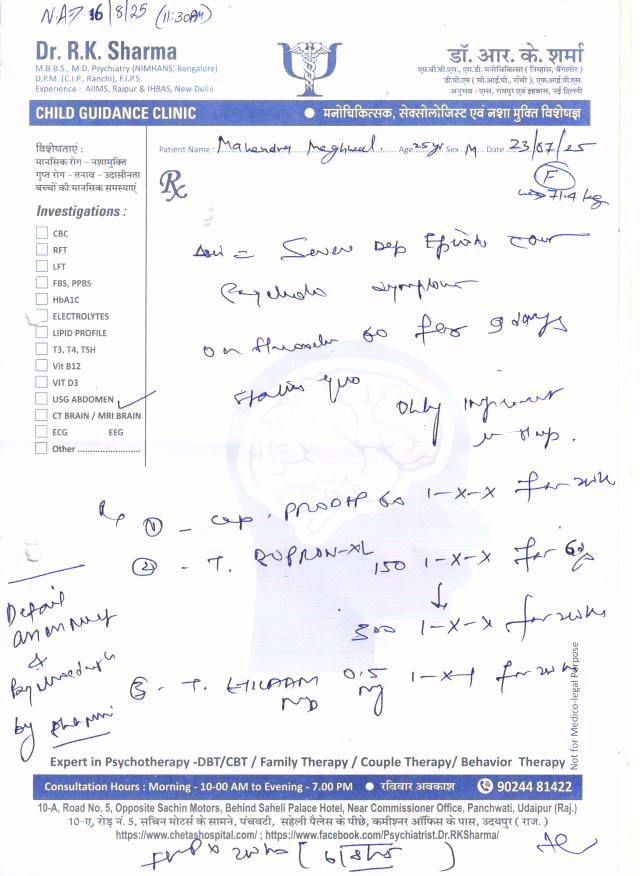 N.A → 16/8/25 (11:30AM)
Dr. R.K. Sharma
M.B.B.S., M.D. Psychiatry (NIMHANS, Bangalore)
D.P.M. (C.I.P., Ranchi), F.I.P.S.
Experience : AIIMS, Raipur & IHBAS, New Delhi
डॉ. आर. के. शर्मा
एम.बी.बी.एस., एम.डी. मनोचिकित्सा ( निम्हांस, बैंगलोर )
डी.पी.एम ( सी.आई.पी., राँची ), एफ.आई.पी.एस.
अनुभव : एम्स, रायपुर एवं इहबास, नई दिल्ली
CHILD GUIDANCE CLINIC
● मनोचिकित्सक, सेक्सोलोजिस्ट एवं नशा मुक्ति विशेषज्ञ
विशेषताएं :
मानसिक रोग – नशामुक्ति
गुप्त रोग – तनाव – उदासीनता
बच्चों की मानसिक समस्याएं
Patient Name : Mahendra Meghwal Age 25yr Sex M Date 23/07/25
F
71.4 kg
Rx
Investigations :
CBC
RFT
LFT
FBS, PPBS
HbA1C
ELECTROLYTES
LIPID PROFILE
T3, T4, TSH
Vit B12
VIT D3
USG ABDOMEN
CT BRAIN / MRI BRAIN
ECG EEG
Other ......................
Severe Dep Episode
symptom
on 60 for 9 days
status quo
Only improvement
in sleep.
① - cap. PRODEP 60 1-X-X for
② - T. BUPRON-XL 150 1-X-X for
↓
300 1-X-X for
③ - T. 0.5 mg 1-X-1 for
MD
Detail
&
by
Not for Medico-legal Purpose
Expert in Psychotherapy -DBT/CBT / Family Therapy / Couple Therapy/ Behavior Therapy
Consultation Hours : Morning - 10-00 AM to Evening - 7.00 PM ● रविवार अवकाश 90244 81422
10-A, Road No. 5, Opposite Sachin Motors, Behind Saheli Palace Hotel, Near Commissioner Office, Panchwati, Udaipur (Raj.)
10-ए, रोड़ नं. 5, सचिन मोटर्स के सामने, पंचवटी, सहेली पैलेस के पीछे, कमीश्नर ऑफिस के पास, उदयपुर ( राज. )
https://www.chetashospital.com/ ; https://www.facebook.com/Psychiatrist.Dr.RKSharma/